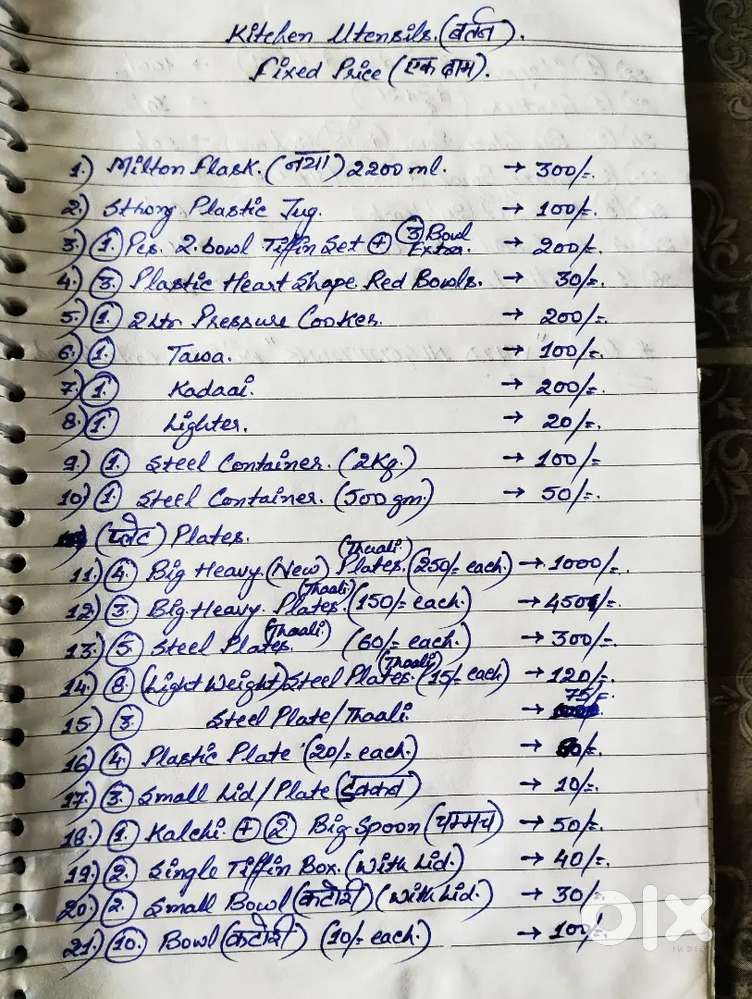 Kitchen Utensils. (बर्तन).
Fixed Price (एक दाम).
1.) Milton Flask. (नया) 2200 ml. → 300/-.
2.) Strong Plastic Jug. → 100/-.
3.) 1. Pcs. 2. bowl Tiffin Set + 3 Bowl Extra. → 200/-.
4.) 3. Plastic Heart Shape Red Bowls. → 30/-.
5.) 1. 2 Ltr Pressure Cooker. → 200/-.
6.) 1. Tawa. → 100/-.
7.) 1. Kadaai. → 200/-.
8.) 1. Lighter. → 20/-.
9.) 1. Steel Container. (2Kg.) → 100/-.
10.) 1. Steel Container. (500 gm.) → 50/-.
(प्लेट) Plates.
11.) 4. Big Heavy. (New) Plates. (Thaali) (250/- each) → 1000/-.
12.) 3. Big Heavy. Plates. (Thaali) (150/- each.) → 450/-.
13.) 5. Steel Plates. (Thaali) (60/- each.) → 300/-.
14.) 8. (Light Weight) Steel Plates. (Thaali) (15/- each) → 120/-.
15.) 3. Steel Plate/Thaali. → 75/-.
16.) 4. Plastic Plate (20/- each.) →
17.) 3. Small Lid/Plate (ढक्कन) → 10/-.
18.) 1. Kalchi + 2. Big Spoon (चम्मच) → 50/-.
19.) 2. Single Tiffin Box. (With Lid.) → 40/-.
20.) 2. Small Bowl (कटोरी) (With Lid.) → 30/-.
21.) 10. Bowl (कटोरी) (10/- each.) → 100/-.
olx
INDIA